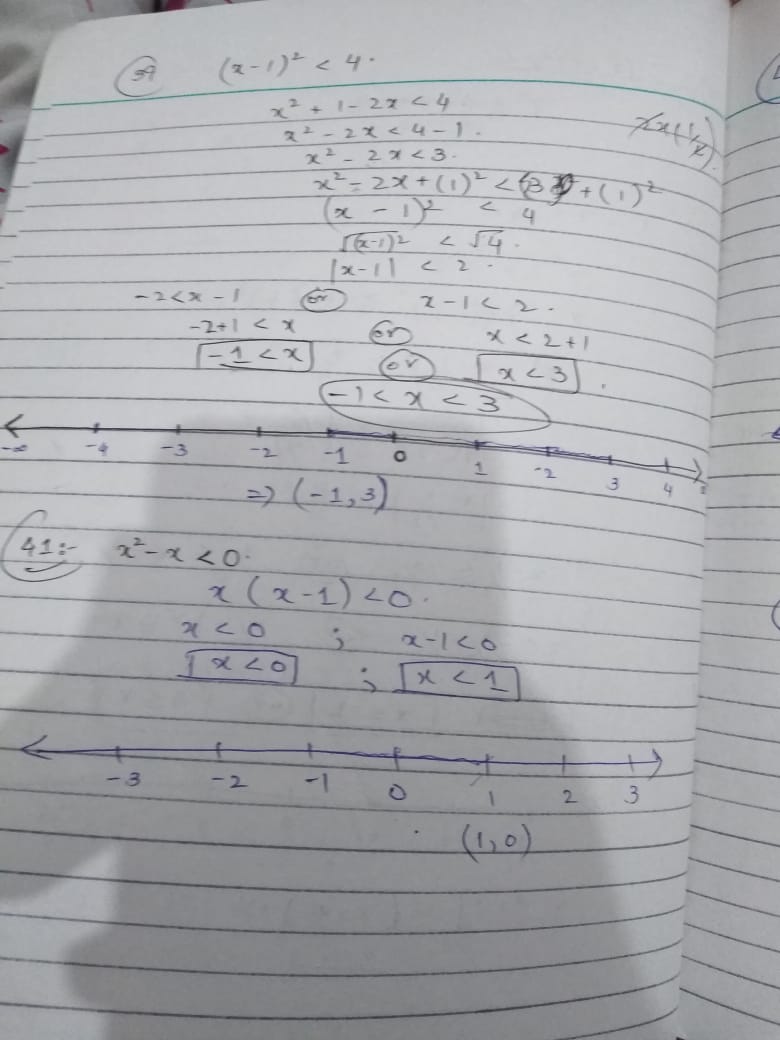 39 (x-1)² < 4.
x² + 1 - 2x < 4
x² - 2x < 4 - 1.
x² - 2x < 3.
x² - 2x + (1)² < (3) + (1)²
(x - 1)² < 4
√(x-1)² < √4.
|x-1| < 2.
-2 < x - 1 or x - 1 < 2.
-2+1 < x or x < 2+1
-1 < x or x < 3.
-1 < x < 3
-∞ -4 -3 -2 -1 0 1 -2 3 4
⇒ (-1,3)
41:- x² - x < 0.
x (x - 1) < 0.
x < 0 ; x-1 < 0
x < 0 ; x < 1
-3 -2 -1 0 1 2 3
(1,0)